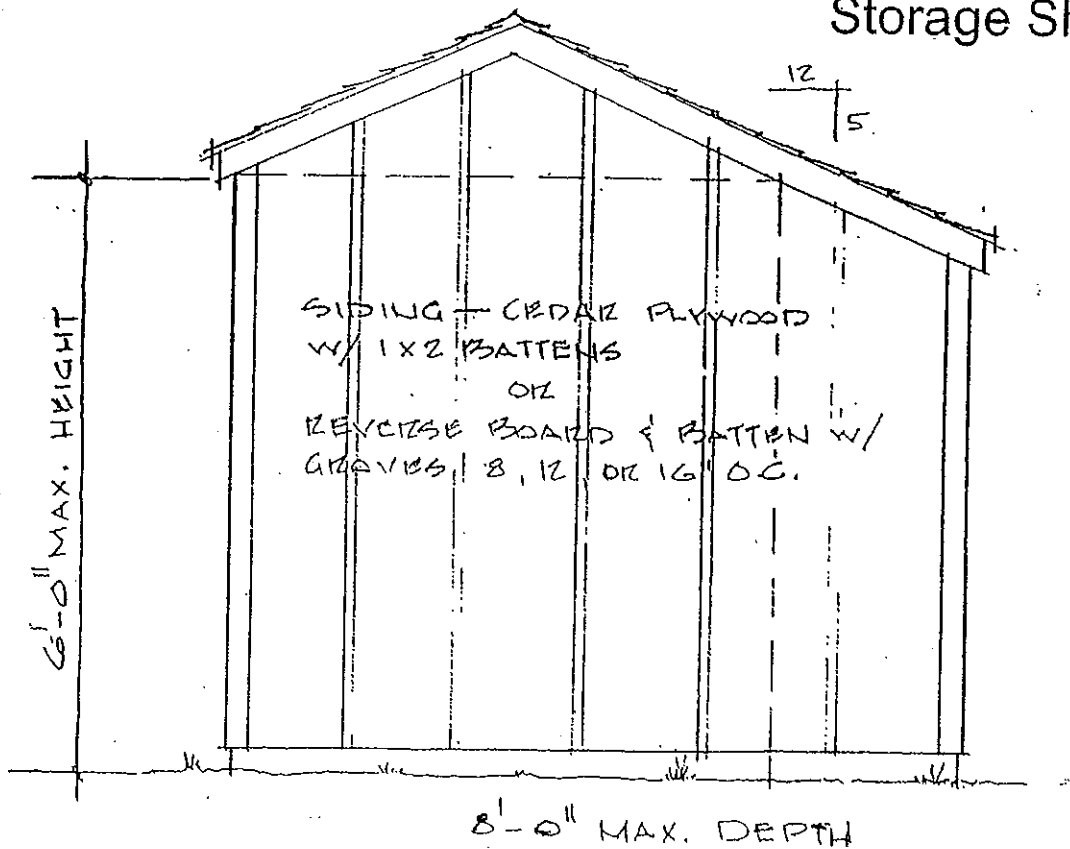 Storage
12
5
6'-0" MAX. HEIGHT
SIDING - CEDAR PLYWOOD
W/ 1X2 BATTENS
OR
REVERSE BOARD & BATTEN W/
GROVES, 8, 12, OR 16" O.C.
8'-0" MAX. DEPTH